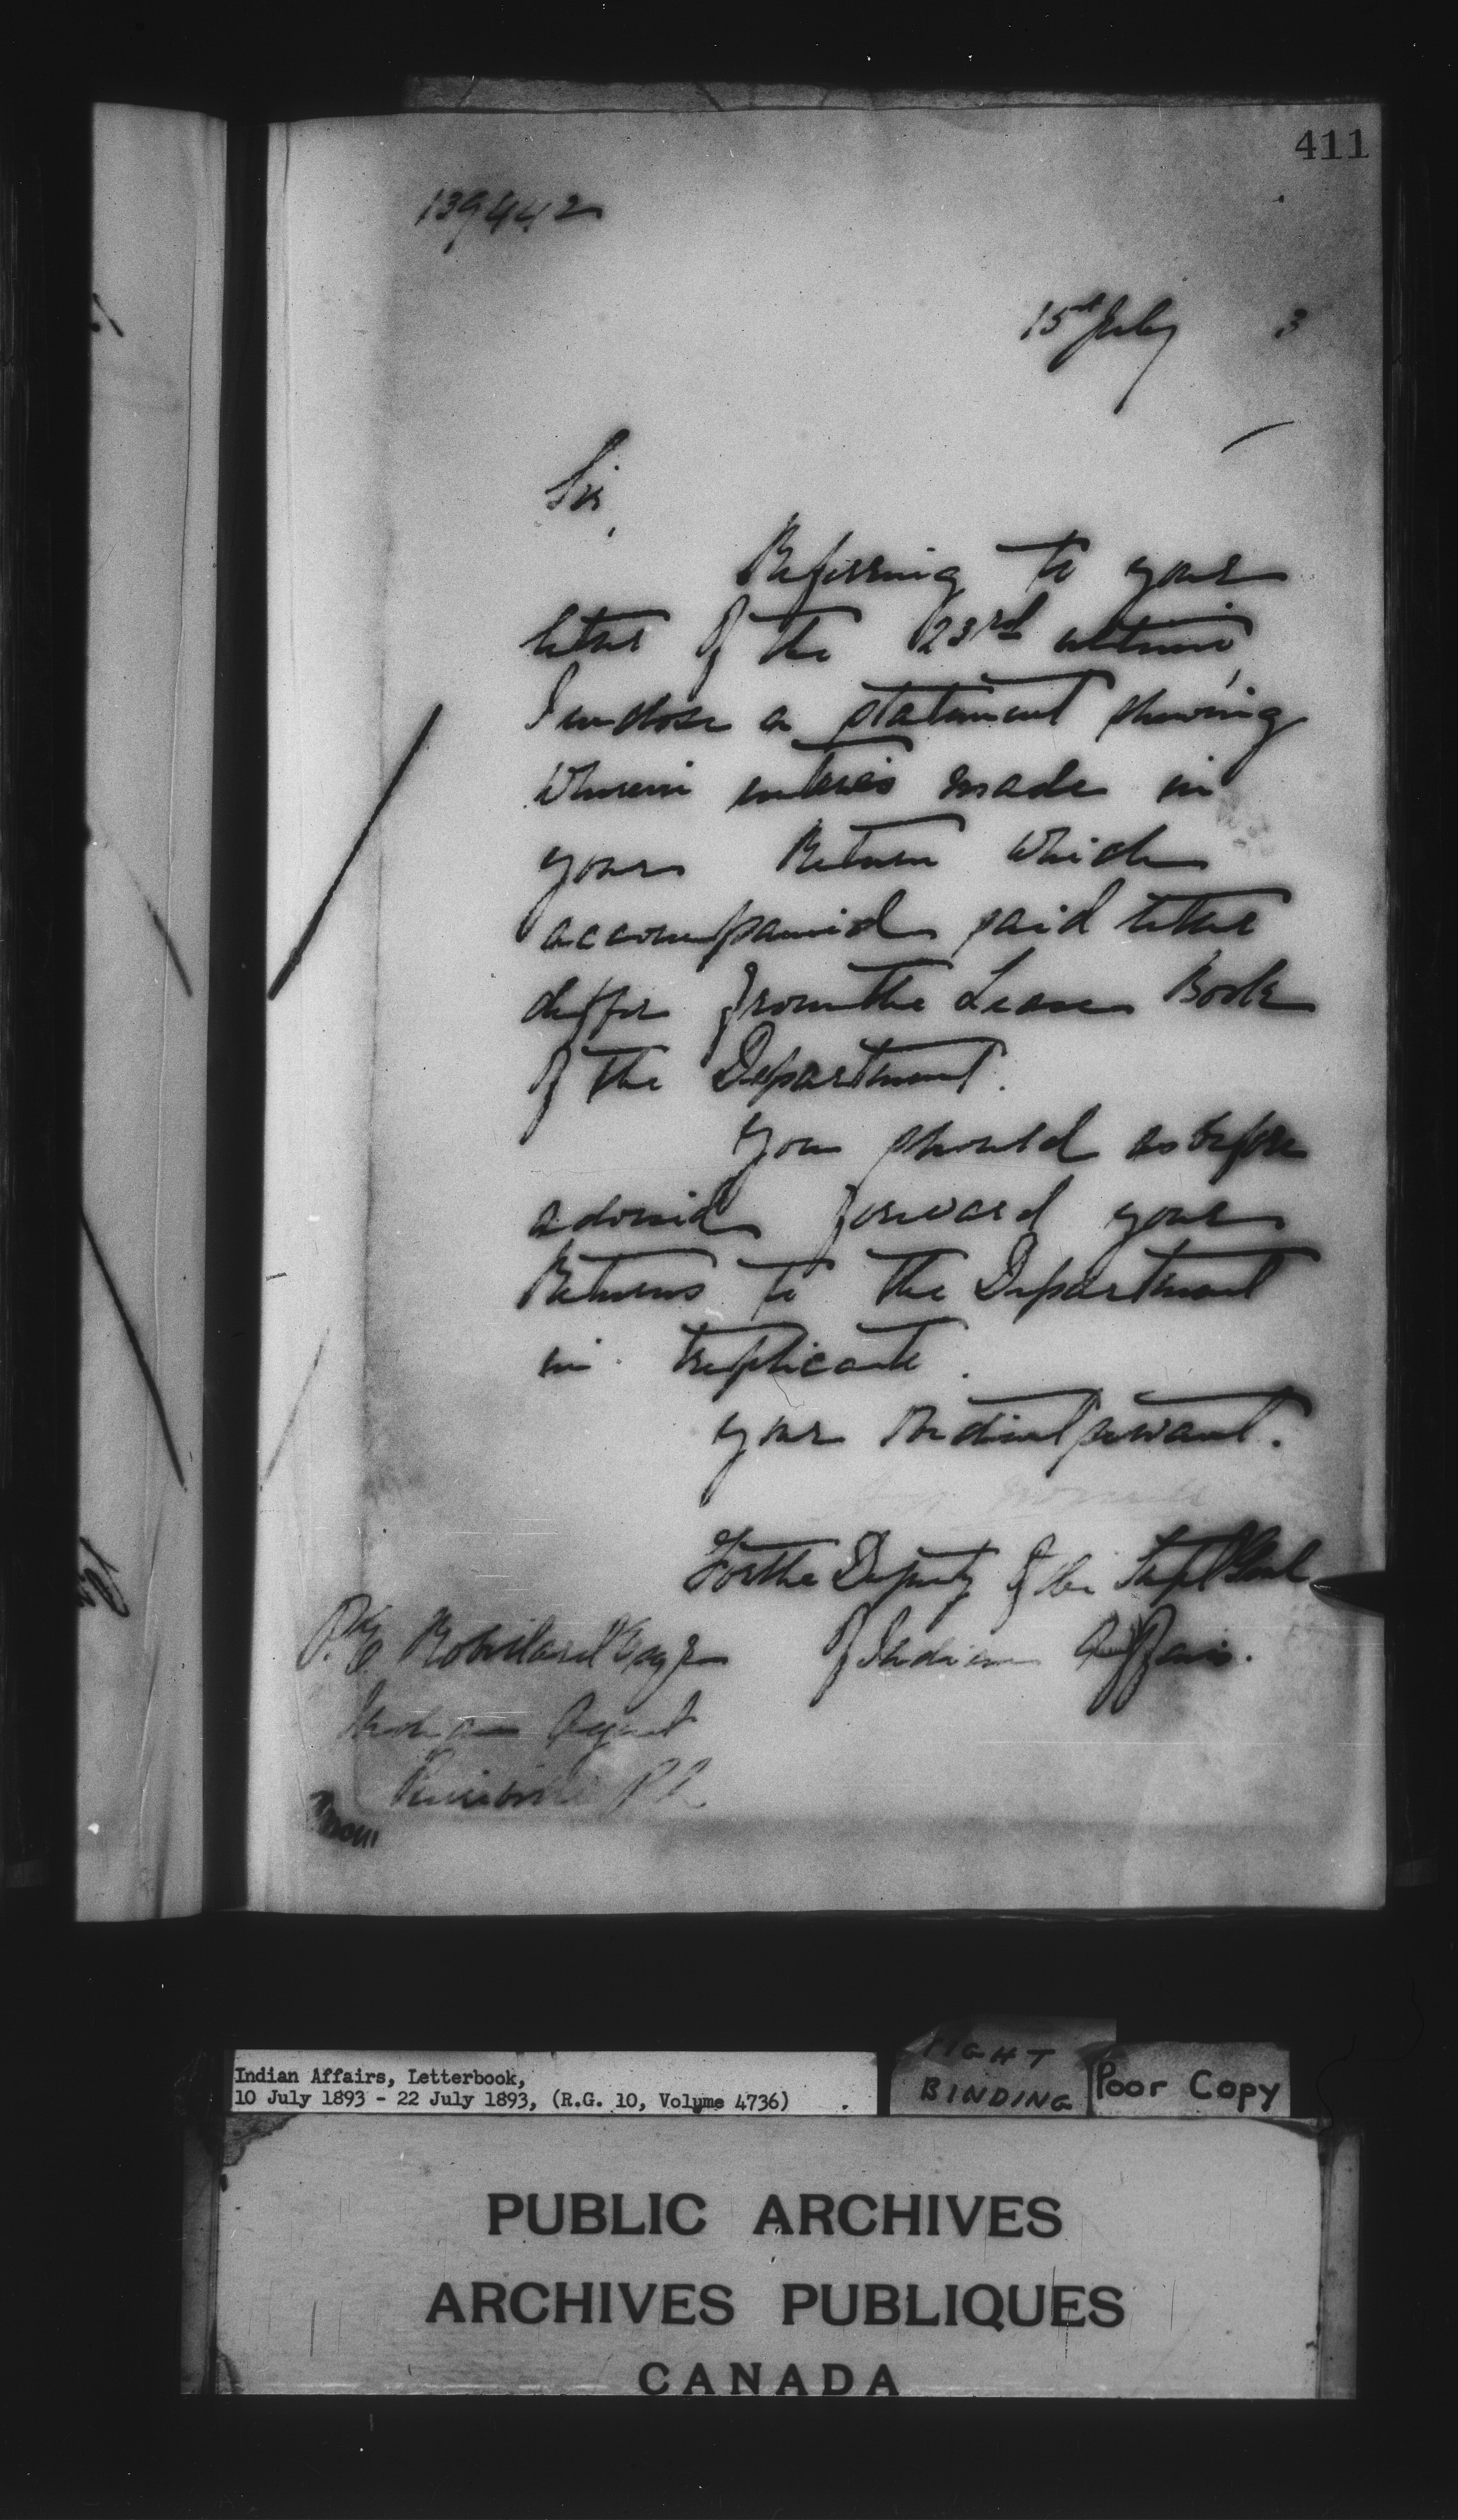 411
139442
15th July 3
Sir,
Referring to your
letter of the 23rd ultimo,
I enclose a statement showing
wherein entries made in
your Return which
accompanied said letter
differ from the Lease Book
of the Department.
You should as before
advised forward your
Returns to the Department
in triplicate.
Your obedient servant.
For the Deputy of the Supt Genl
of Indian Affairs.
P. E. Robillard Esqre
Indian Agent
Pierreville P.Q.
Indian Affairs, Letterbook,
10 July 1893 - 22 July 1893, (R.G. 10, Volume 4736)
TIGHT
BINDING
Poor Copy
PUBLIC ARCHIVES
ARCHIVES PUBLIQUES
CANADA